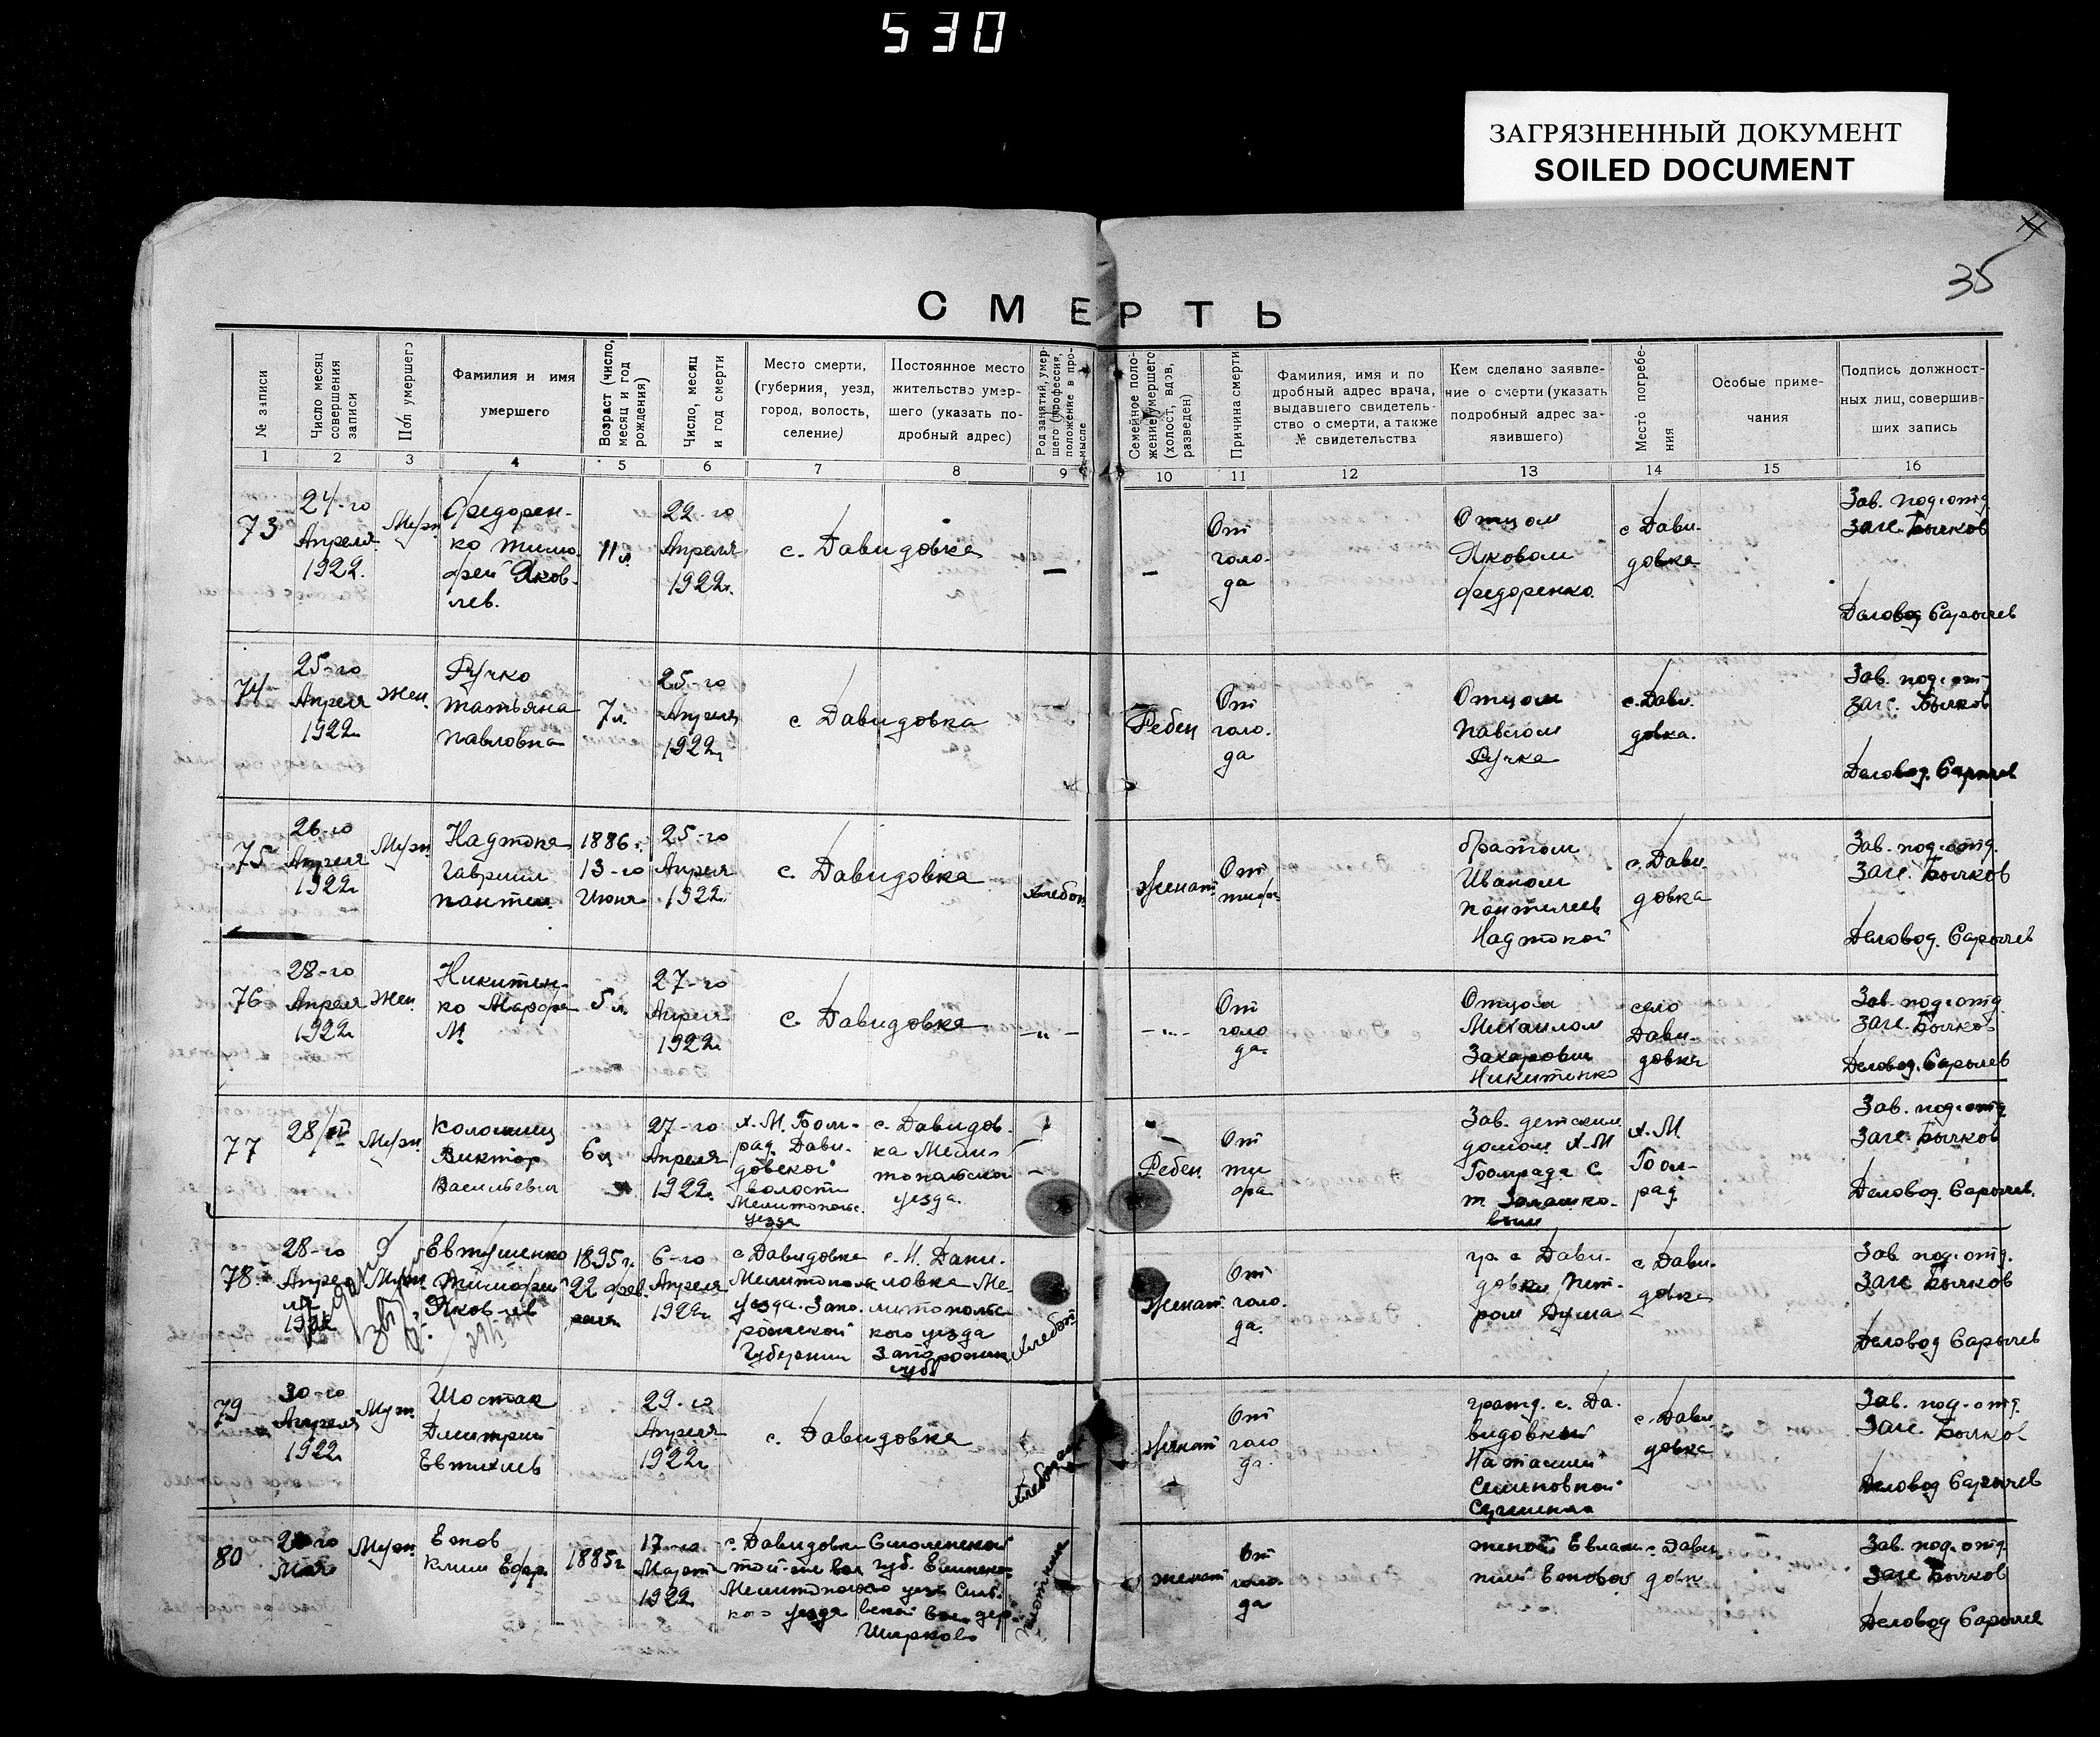 530
ЗАГРЯЗНЕННЫЙ ДОКУМЕНТ
SOILED DOCUMENT
35
СМЕРТЬ
№ записи
Число месяц
совершения
записи
Пол умершего
Фамилия и имя
умершего
Возраст (число,
месяц и год
рождения)
Число, месяц
и год смерти
Место смерти,
(губерния, уезд,
город, волость,
селение)
Постоянное место
жительство умер-
шего (указать по-
дробный адрес)
Род занятий, умер-
шего (профессия,
положение в про-
мысле
Семейное поло-
жение умершего
(холост, вдов,
разведен)
Причина смерти
Фамилия, имя и по
дробный адрес врача,
выдавшего свидетель-
ство о смерти, а также
№ свидетельства
Кем сделано заявле-
ние о смерти (указать
подробный адрес за-
явившего)
Место погребе-
ния
Особые приме-
чания
Подпись должност-
ных лиц, совершив-
ших запись
1 2 3 4 5 6 7 8 9 10 11 12 13 14 15 16
73
24-го
Апреля
1922.
Муж.
Федорен-
ко Тимо-
фей Яков-
лев.
11 л
22-го
Апреля
1922г.
с. Давидовка
—
—
От
голо-
да
Отцом
Яковом
Федоренко
с Дави-
довка
Зав. подотд.
Загс. Бычков
Деловод Сарычев
74
25-го
Апреля
1922г.
Жен.
Ручко
Татьяна
Павловна
7 л.
25-го
Апреля
1922г.
с Давидовка
Ребен
От
голо-
да
Отцом
Павлом
Ручка
с. Дави-
довка.
Зав. подот-
загс. Бычков
Деловод. Сарычев
75
26-го
Апреля
1922г
Муж.
Надтока
Гавриил
Пантел.
1886г.
13-го
Июня
25-го
Апреля
1922г.
с. Давидовка
Хлебоп.
Женат
От
тифа
Братом
Иваном
Пантелеев
Надтокой
с. Дави-
довка
Зав. подотд.
Загс. Бычков
Деловод. Сарычев
76
28-го
Апреля
1922г
Жен.
Никитен-
ко Марфа
М.
5 л.
27-го
Апреля
1922г.
с Давидовка
—"—
—"—
От
голо
да.
Отцом
Михаилом
Захарович
Никитенко
село
Дави-
довка
Зав. подотд.
Загс. Бычков
Деловод. Сарычев
77
28/IV
Муж.
Коломиец
Виктор
Васильевич
6 л
27-го
Апреля
1922г.
А.М. Богм-
рад. Дави-
довской
волости
Мелитопольс.
уезда
с. Давидов-
ка Мели-
топольский
уезда.
—
Ребен.
От
ти
фа
Зав. детским
домом А.М
с
А.М.
рад.
Зав. подотд.
Загс. Бычков
Деловод. Сарычев.
78.
28-го
Апре
ля
1922
Муж.
Евтушенко
Тимофей
Яков-лев
1895г.
22 фев
раля
6-го
Апреля
1922г.
с Давидовка
Мелитополь
уезда. Запо-
рожской
Губернии
с. Н. Дани-
ловка Ме-
литопольс-
кого уезда
Запорожск
губ
Хлебоп
Женат
От
голо-
да.
гр с Дави-
довки Пет-
ром Дума
с Дави-
довка
Зав. подотд.
Загс Бычков
Деловод Сарычев
79
30-го
Апреля
1922г.
Муж.
Шостак
Дмитрий
Евтихиев
29-го
Апреля
1922г.
с. Давидовка
Хлебопаш
Женат
От
голо
да.
гражд. с. Да-
видовкий
Наталией
Семеновной
с. Дави
довка
Зав. подотд.
Загс. Бычков
Деловод Сарычев
80
Мая
Муж.
Ежов
Клим Ефр.
1885г
17-го
Март
1922
с. Давидовка
той-же вол
Мелитопольс
кого уезда
Смоленской
губ. Ельнинс-
кого уезд
вол. дер.
Ширково
Плотник
женат
От
голо-
да
женой Евлам-
пией Ежовой
с. Дави-
довк
Зав. подотд.
Загс Бычков
Деловод Сарычев